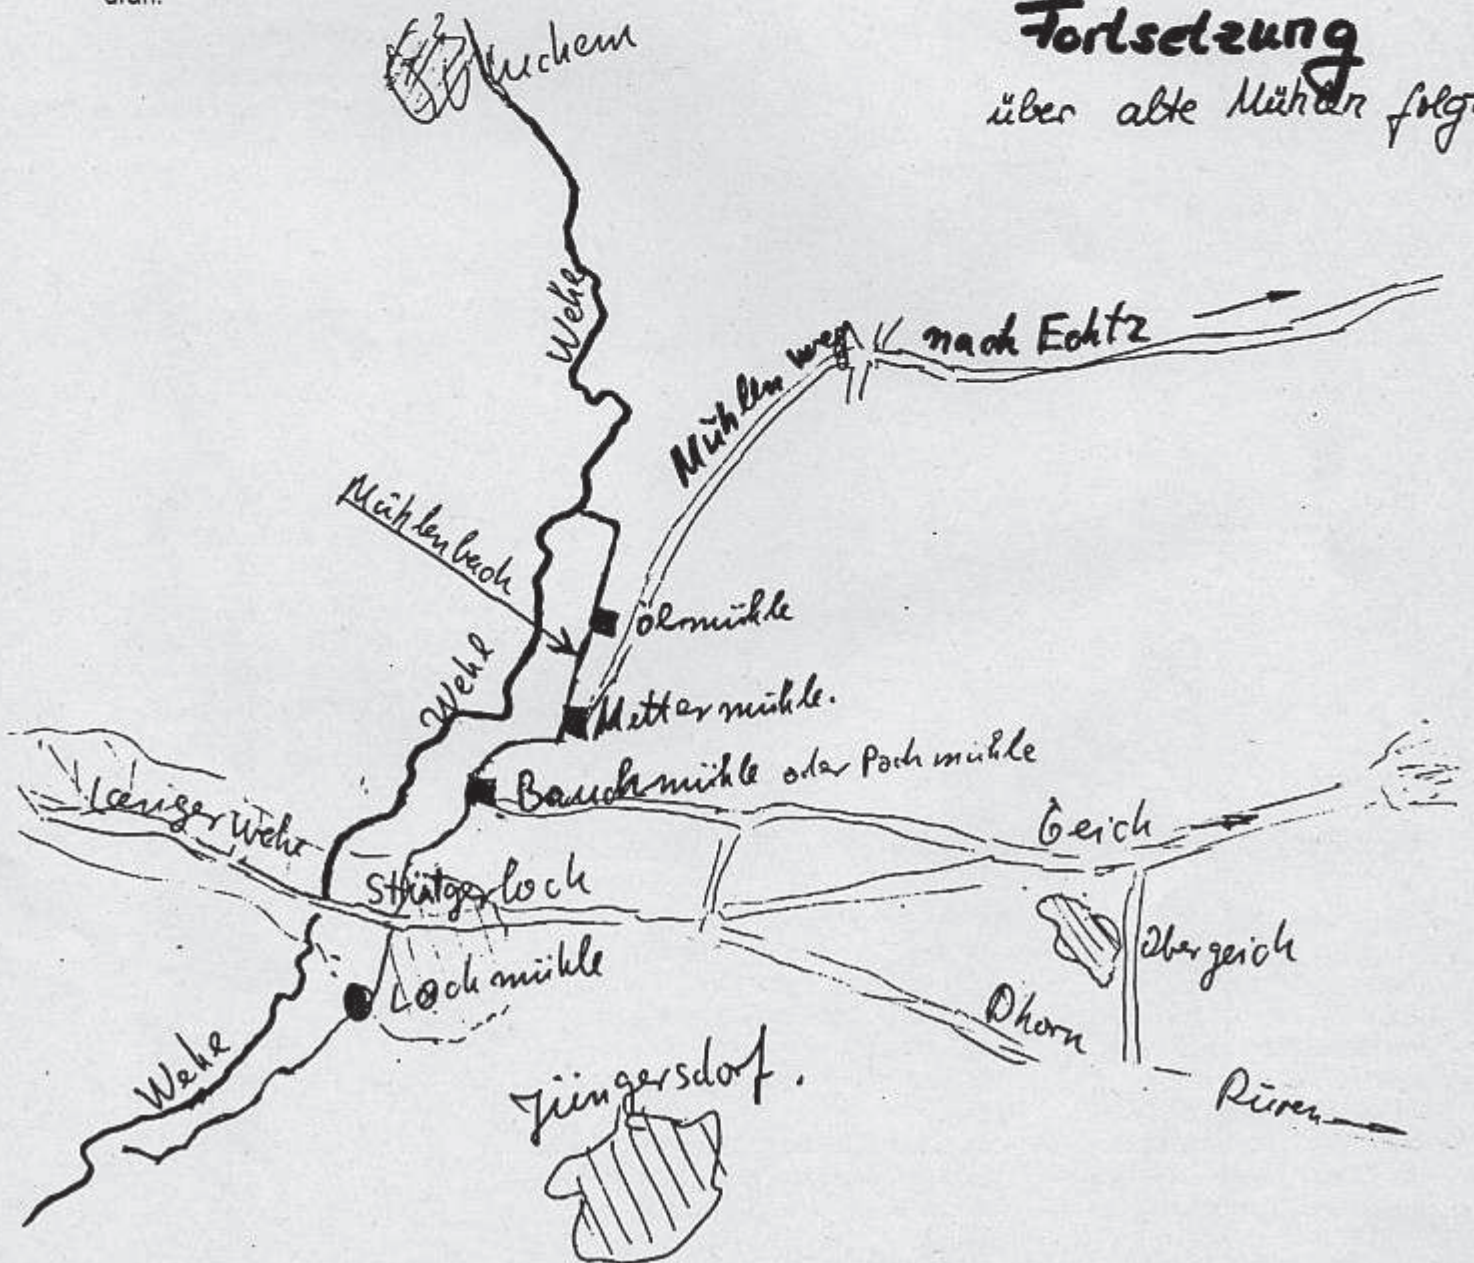 Fortsetzung
über alte Mühlen folgt
Luchem
Wehe
nach Echtz
Mühlenweg
Mühlenbach
Ölmühle
Wehe
Mettermühle.
Bauchmühle oder Pochmühle
Langerwehe
Geich
Stütgerloch
Obergeich
Lochmühle
Dhorn
Wehe
Jüngersdorf.
Düren